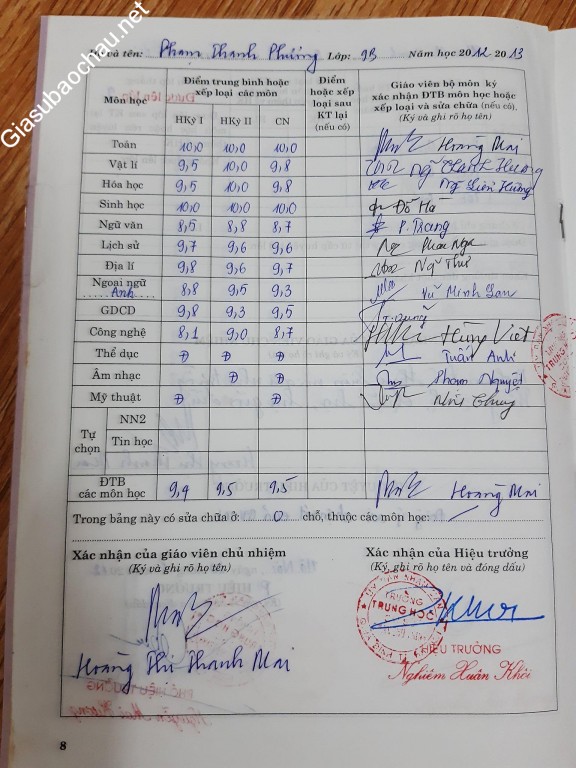 Giasubaochau.net
Họ và tên: Phạm Thanh Phương Lớp: 9B Năm học 2012-2013
Môn học Điểm trung bình hoặc xếp loại các môn Điểm hoặc xếp loại sau KT lại (nếu có) Giáo viên bộ môn ký xác nhận ĐTB môn học hoặc xếp loại và sửa chữa (nếu có). (Ký và ghi rõ họ tên)
HKỳ I HKỳ II CN
Toán 10,0 10,0 10,0 Hoàng Mai
Vật lí 9,5 10,0 9,8 Ng Thanh Hương
Hóa học 9,5 10,0 9,8 Ng Liên Hương
Sinh học 10,0 10,0 10,0 Đỗ Hà
Ngữ văn 8,5 8,8 8,7 P. Trang
Lịch sử 9,7 9,6 9,6 Phan Nga
Địa lí 9,8 9,6 9,7 Ng Thư
Ngoại ngữ Anh 8,8 9,5 9,3 Vũ Minh Lan
GDCD 9,8 9,3 9,5 T. Dung
Công nghệ 8,1 9,0 8,7 Hùng Việt
Thể dục Đ Đ Đ Tuấn Anh
Âm nhạc Đ Đ Phạm Nguyệt
Mỹ thuật Đ Đ
Tự chọn NN2
Tin học
ĐTB các môn học 9,4 9,5 9,5 Hoàng Mai
Trong bảng này có sửa chữa ở: 0 chỗ, thuộc các môn học: /
Xác nhận của giáo viên chủ nhiệm Xác nhận của Hiệu trưởng
(Ký và ghi rõ họ tên) (Ký, ghi rõ họ tên và đóng dấu)
TRƯỜNG
TRUNG HỌC
HIỆU TRƯỞNG
Hoàng Thị Thanh Mai Nghiêm Xuân Khôi
8